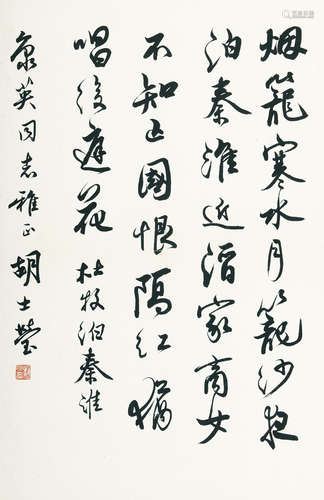 烟籠寒水月籠沙夜
泊秦淮近酒家商女
不知亡國恨隔江猶
唱後庭花 杜牧泊秦淮
泉英同志雅正 胡士瑩